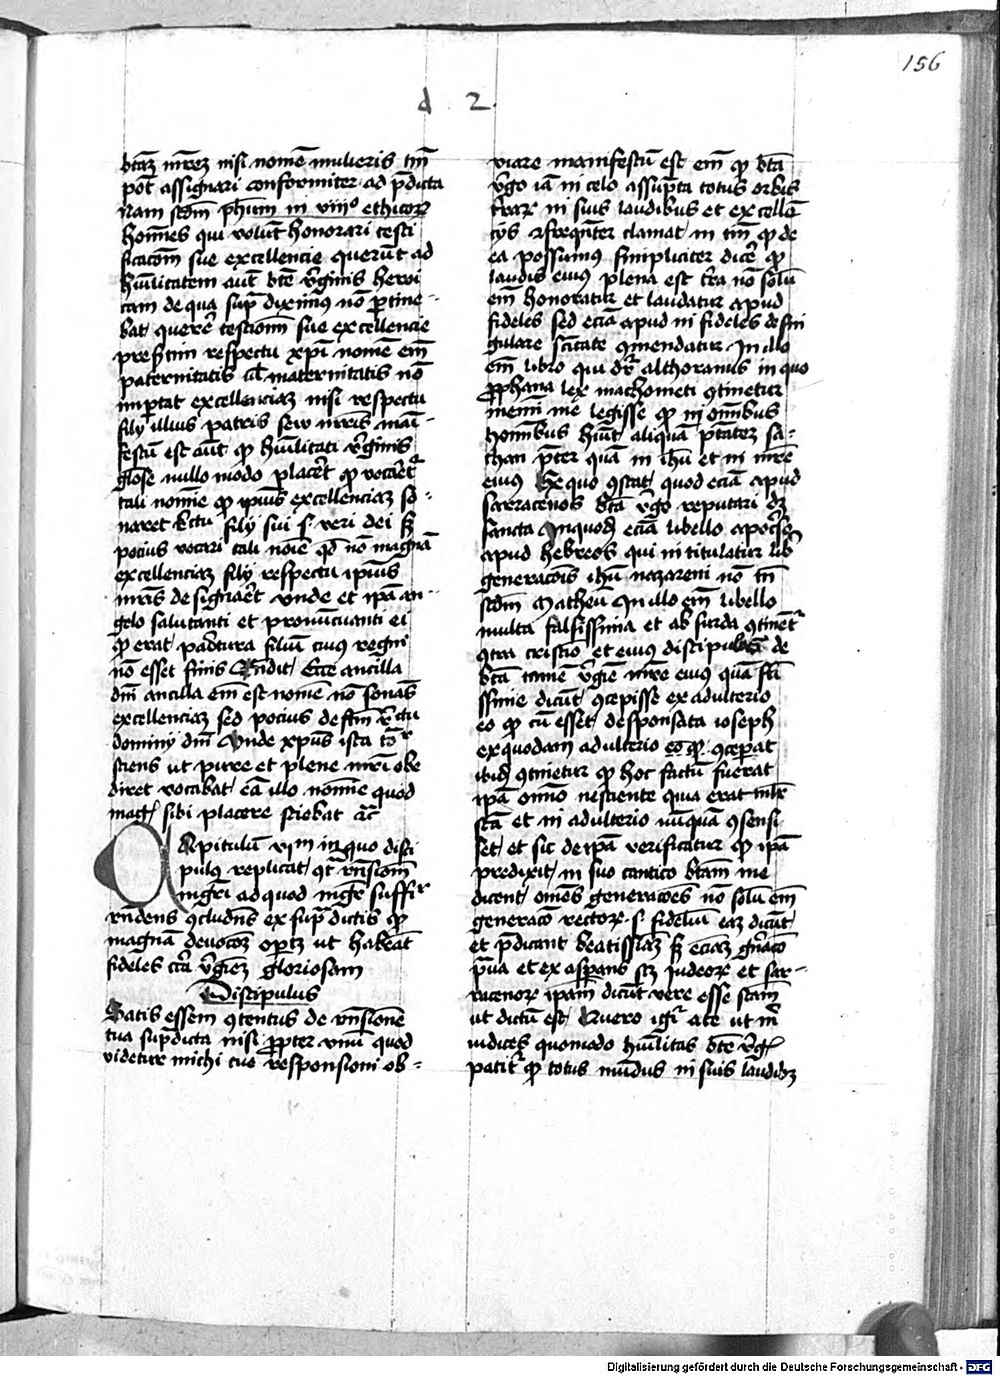 156
d 2
btaȝ mr̄eȝ nisi nomē mulieris tm̄
pot̄ assignari conformiter ad p̄dicta
Nam scdm̄ ph̄um in viiiº ethicoꝝ
homēs qui volūt honorari testi
ficacōm sue excellencie querūt ad
hūilitatem aut̄ btē v̄ginis heroi
cam de qua sup̄ diximus nō p̄tine-
bat querē testiom̄ sue excellencie
pres̄tim respectu xp̄i nomē em̄
paternitatis ul̄ maternitatis nō
importat excellenciaȝ nisi respectu
filij illius patris seu mr̄is mani-
festū est aut̄ ꝙ hūilitati v̄ginis
gl̄ose nullo modo placer̄t ꝙ vocaret̄
tali nomīe ꝙ ipius excellenciaȝ so-
naret filij sui s. veri dei sȝ
pocius vocari tali noīe qd̄ nō magnā
excellenciaȝ filij respectu ipius
mr̄is designaret vnde et ipa an-
gelo salutanti et pronunccianti ei
ꝙ erat paritura filiū cuius regni
nō esset finis Rn̄dit Ecce ancilla
dn̄i ancilla em̄ est nomē nō sonās
excellenciaȝ sed pocius defectū
dominij dn̄i Vnde xp̄us ista
sciens ut pure et plene mr̄i obe
diret vocabat eā illo nomīe quod
maḡ sibi placere sciebat
Capitulū viii in quo disci
pulus replicat qr̄ rn̄siom̄
mgr̄i ad quod mgr̄ suffir̄
rn̄dens ꝯcludens ex sup̄dictis ꝙ
magnā deuocōȝ oportȝ ut habeāt
fideles erga v̄gineȝ gloriosam
Discipulus
Satis essem ꝯtentus de rn̄sione
tua sup̄dicta nisi ꝓpter vnū quod
videtur michi tue responsioni ob-
viare manifestū est em̄ ꝙ bta
v̄go iā in celo assūpta totus orbis
tr̄aꝝ in suis laudibus et excellen
cijs frequēter clamat in tm̄ ꝙ de
ea possumus simpliciter dicē ꝙ
laudis eius plena est tr̄a nō solū
em̄ honoratur et laudatur apud
fideles sed eciā apud infideles de sin
gulare sc̄itate ꝯmendatur In illo
em̄ libro qui dr̄ althoranus in quo
ꝓphana lex machometi ꝯtinetur
memini me legisse ꝙ in omībus
homībus hūit aliquā p̄tateȝ sa-
than p̄ter quā in ihū et in mr̄e
eius Ex quo ꝯstat quod eciā apud
sarracenos bta v̄go reputari dȝ
sancta In quodā eciā libello
apud hebreos qui intitulatur lib̄
generacōis ihū nazareni nō tn̄
scdm̄ Matheū In illo em̄ libello
multa falsissima et absurda ꝯtinēt
ꝯtra cristiō et eius discipulos de
bta tamē v̄gīe mr̄e eius quā
dicūt ꝯcepisse ex adulterio
eo ꝙ cū esset desponsata ioseph
ex quodam adulterio eo ꝙ ꝯceperat
ibidē ꝯtinetur ꝙ hoc factū fuerat
ipa omīo nesciente quia erat mulr̄
sc̄a et in adulterio nūquā ꝯsensi
set et sic de ipa verificatur ꝙ ipa
predixit in suo cantico btam me
dicent omēs generacoēs nō solū em̄
generacō rectoꝝ s. fideliū eaȝ dicūt
et p̄dicant beatissiaȝ sȝ eciaȝ gn̄acō
p̄ua et exasperans scȝ iudeoꝝ et sar-
racenoꝝ ipam dicūt vere esse sc̄am
ut dictū est Quero igr̄ a te ut mi
indices quomodo hūilitas btē v̄gis
patit̄ ꝙ totus mūdus in suis laudibȝ
Digitalisierung gefördert durch die Deutsche Forschungsgemeinschaft - DFG